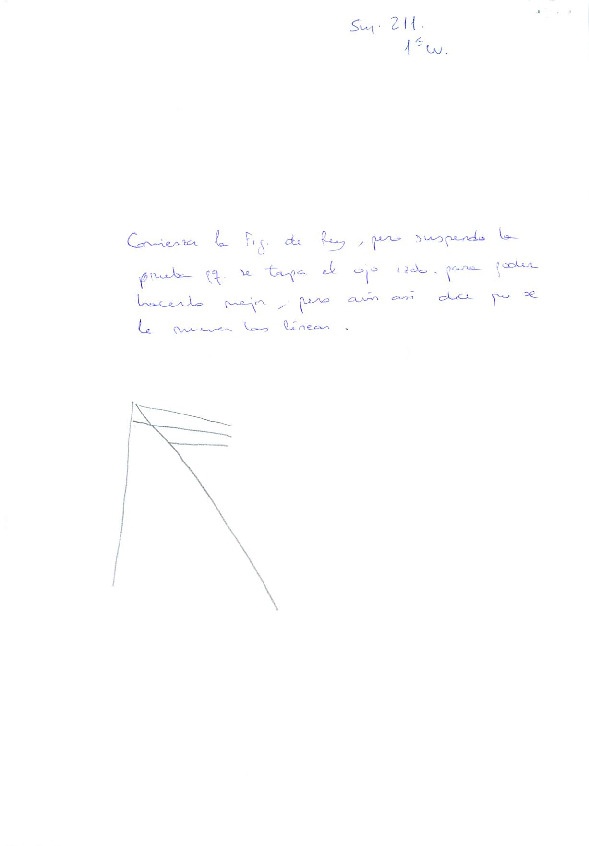 Suj. 211.
1ª
Comienza la Fig. de Rey, pero suspendo la
prueba pq. se tapa el ojo izdo. para poder
hacerlo mejor, pero aún así dice que se
le mueven las líneas.